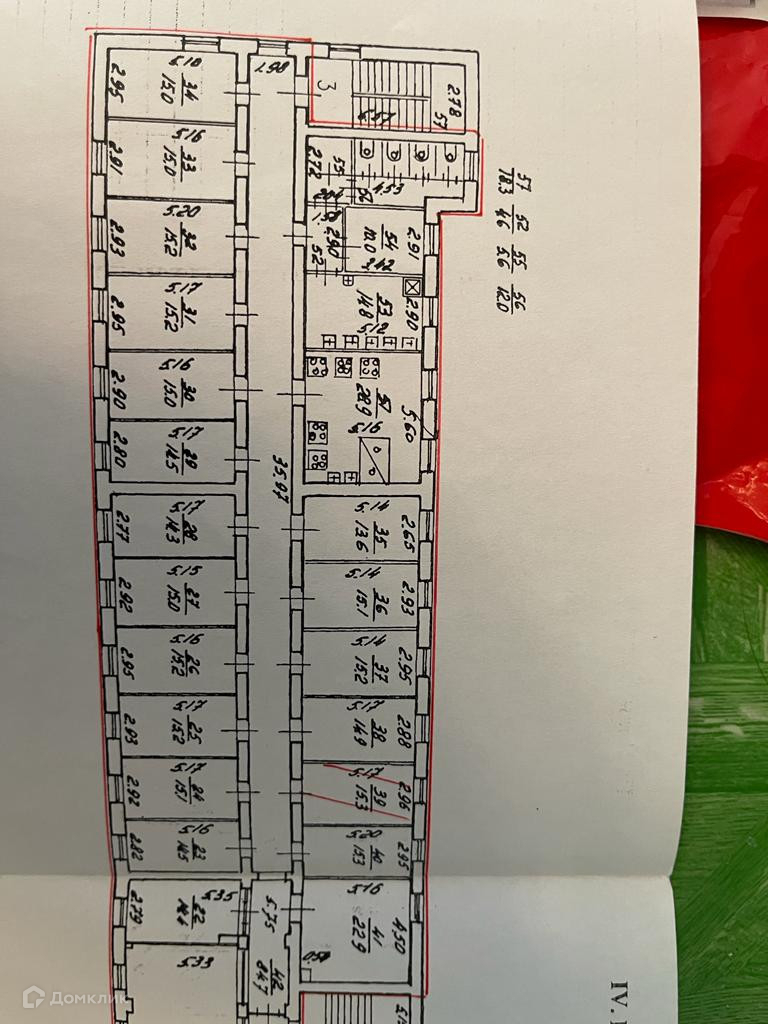 5.10
34
15.0
2.95
5.16
33
15.0
2.91
5.20
32
15.2
2.93
5.17
31
15.2
2.95
5.16
30
15.0
2.90
5.17
29
14.5
2.80
5.17
28
14.3
2.77
5.15
27
15.0
2.92
5.16
26
15.2
2.95
5.17
25
15.2
2.93
5.17
24
15.1
2.92
5.16
23
14.5
2.82
5.35
22
2.79
5.33
35.97
3
2.78
57
4.53
2.72
55
2.90
52
2.91
54
10.0
3.42
2.90
53
14.8
5.12
5.60
28.9
5.16
5.14
35
13.6
2.65
5.14
36
15.1
2.93
5.14
37
15.2
2.95
5.17
38
14.9
2.88
5.17
39
15.3
2.96
5.20
40
15.3
2.95
5.16
41
22.9
4.50
5.75
42
84.7
57
14.3
52
4.6
55
5.6
56
12.0
IV.
Домклик